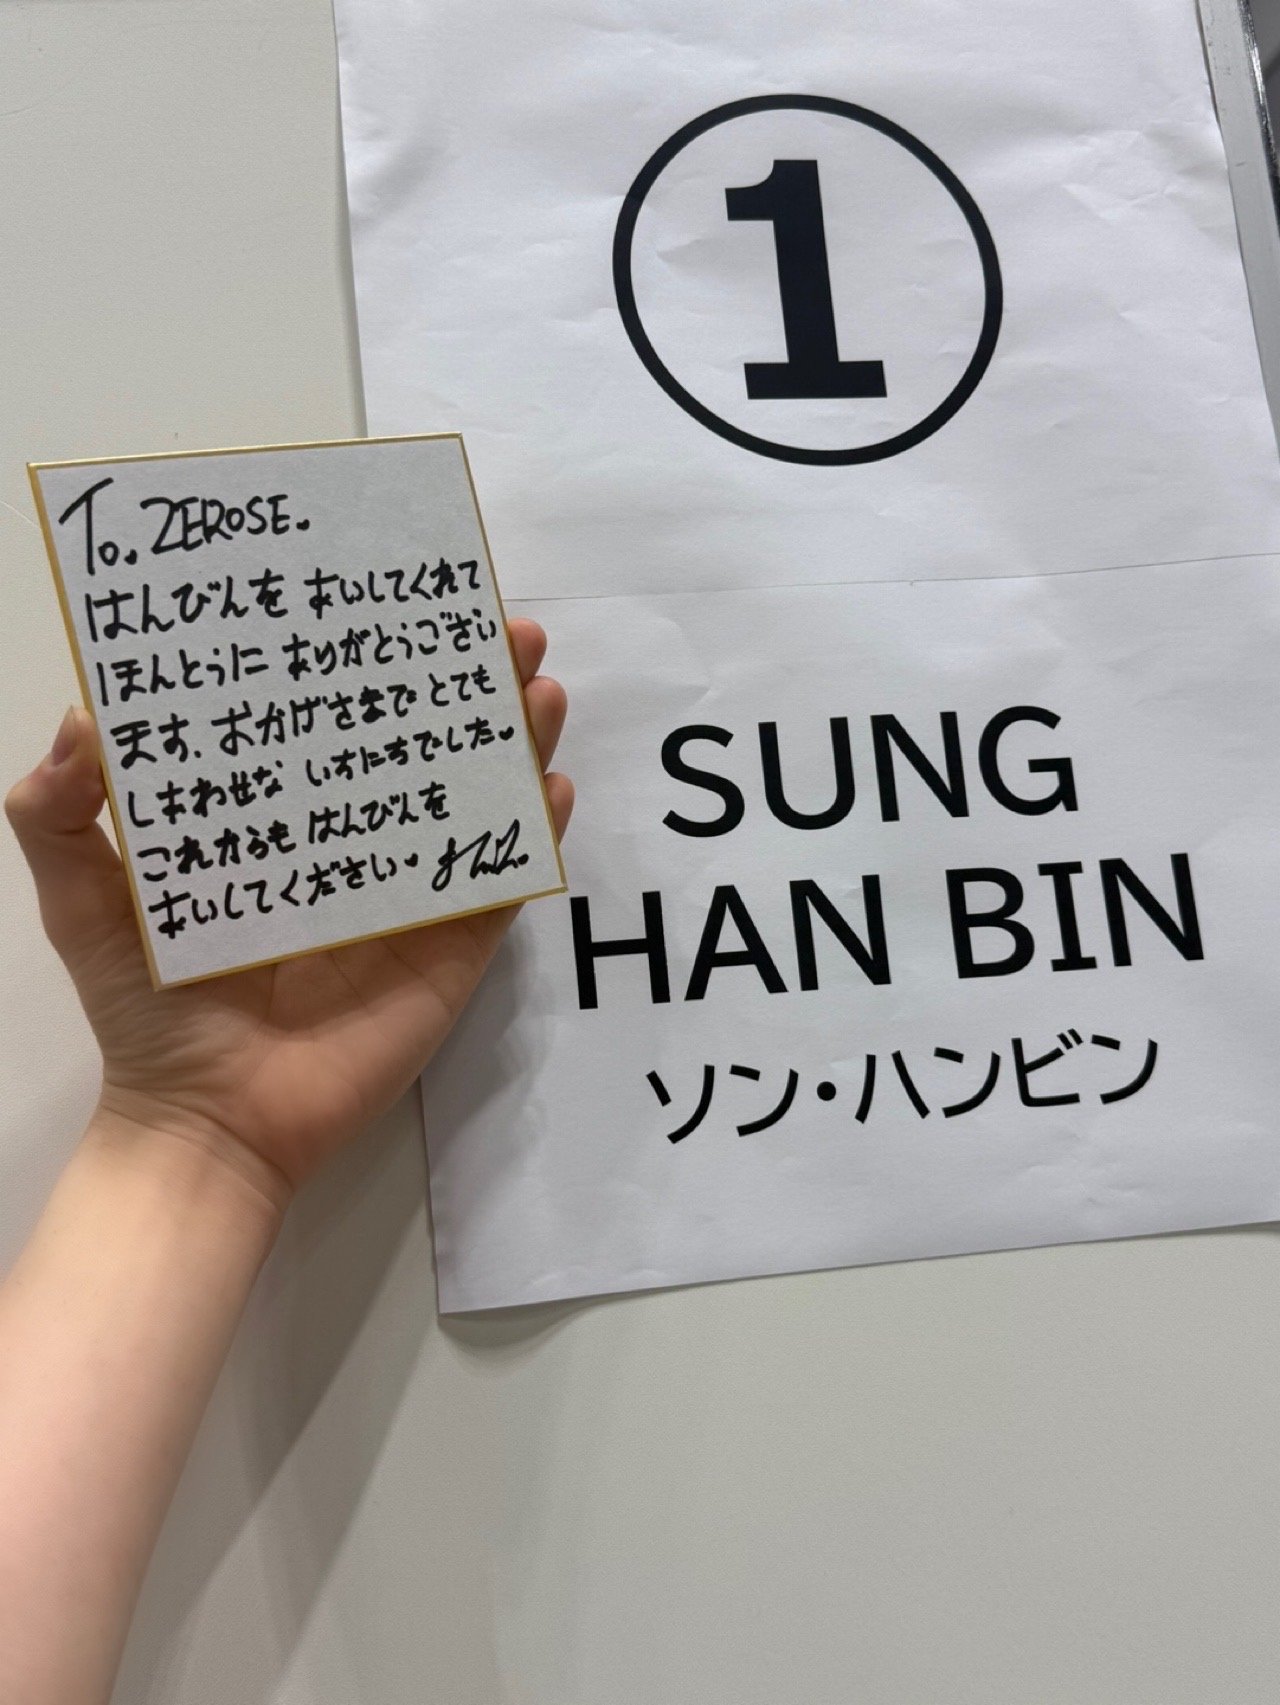 To. ZEROSE.
はんびんを あいしてくれて
ほんとうに ありがとうござい
ます. おかげさまで とても
しあわせな いちにちでした♥
これからも はんびんを
あいしてください♥
①
SUNG
HAN BIN
ソン・ハンビン